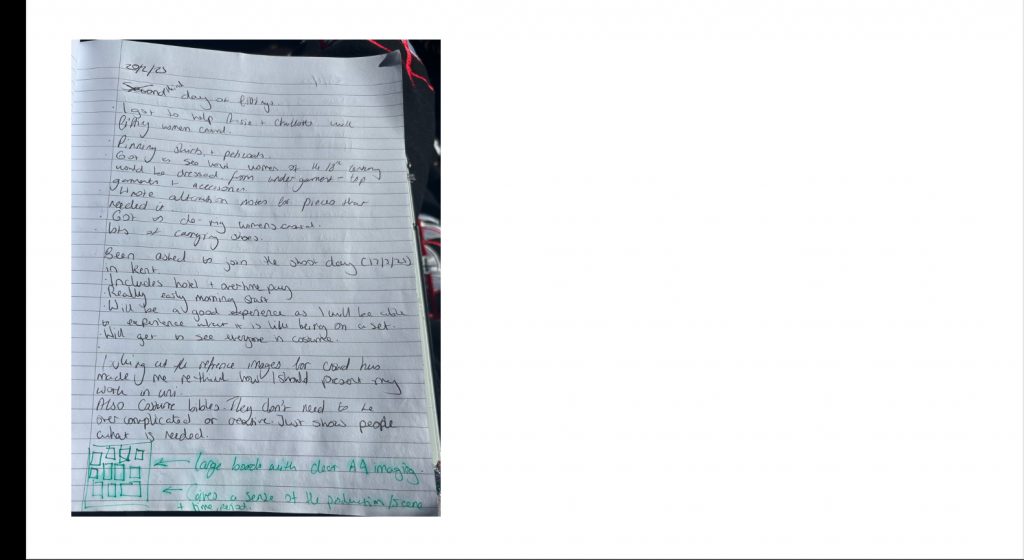 day of fittings
I got to help + Charlotte with
fitting women crowd.
Pinning skirts + petticoats.
Got to see how women of the 18th century
would be dressed from under garment - top
garments + accessories.
Wrote alteration notes for pieces that
needed it.
Got to do my womens crowd.
lots of carrying shoes.
Been asked to join the shoot day
in Kent.
Includes hotel + overtime pay
Really early morning start
Will be a good experience as I will be able
to experience what it is like being on a set.
Will get to see everyone in costume.
Looking at the refrence images for crowd has
made me re-think how I should present my
work in uni.
Also Costume bibles. They don't need to be
over complicated or creative. Just show people
what is needed.
← Large boards with clear A4 imaging.
← Gives a sense of the production/scene
+ time period.